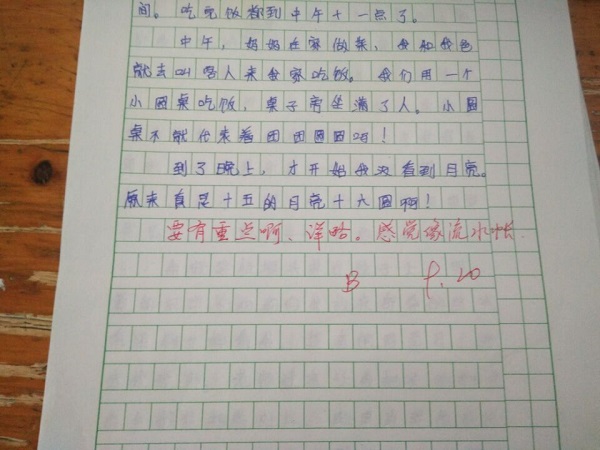 间。吃完饭都到中午十一点了。
中午，妈妈在家做菜，我和我爸
就去叫客人来我家吃饭。我们用一个
小圆桌吃饭，桌子旁坐满了人。小圆
桌不就代表着团团圆圆吗！
到了晚上，才开始我没看到月亮。
原来真是十五的月亮十六圆啊！
要有重点啊、详略。感觉像流水帐.
B 9.20